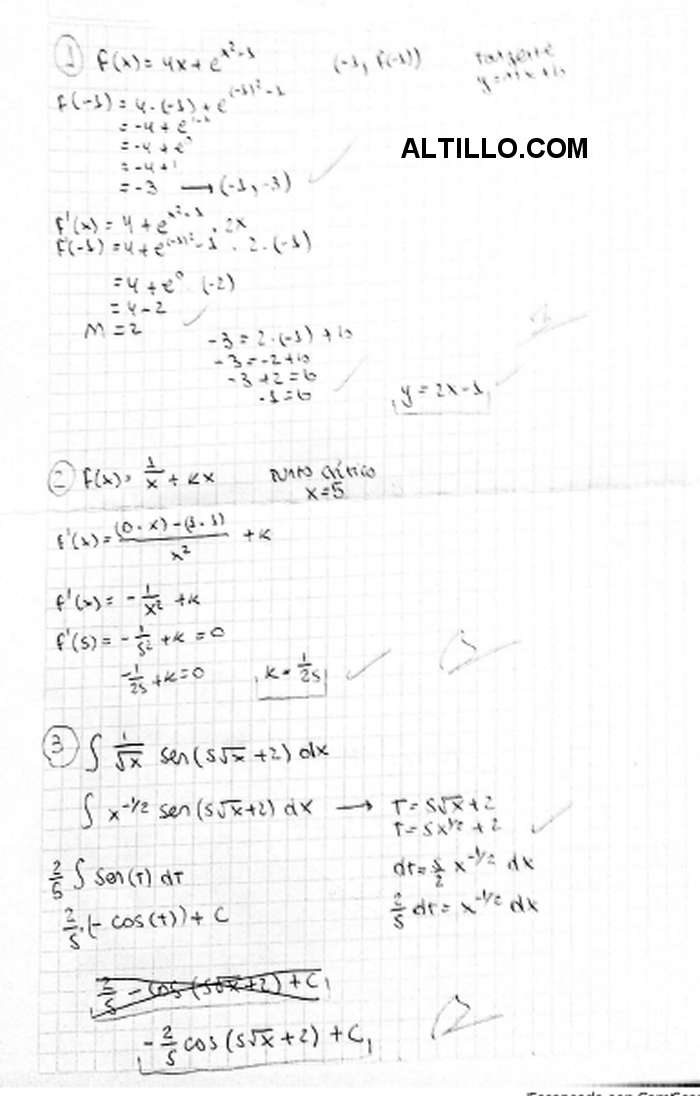 ① f(x) = 4x + e^{x²-1} (-1, f(-1)) Tangente
y = mx + b
f(-1) = 4·(-1) + e^{(-1)²-1}
= -4 + e^{1-1}
= -4 + e⁰
ALTILLO.COM
= -4 + 1
= -3 → (-1, -3)
f'(x) = 4 + e^{x²-1} · 2x
f'(-1) = 4 + e^{(-1)²-1} · 2·(-1)
= 4 + e⁰ · (-2)
= 4 - 2
M = 2
-3 = 2·(-1) + b
-3 = -2 + b
-3 + 2 = b
-1 = b
y = 2x - 1
② f(x) = 1/x + kx Punto crítico
x = 5
f'(x) = (0·x) - (1·1) / x² + k
f'(x) = -1/x² + k
f'(5) = -1/5² + k = 0
-1/25 + k = 0 k = 1/25
③ ∫ 1/√x sen(5√x + 2) dx
∫ x^{-1/2} sen(5√x + 2) dx → T = 5√x + 2
T = 5x^{1/2} + 2
2/5 ∫ sen(T) dT
dT = 5/2 x^{-1/2} dx
2/5·(-cos(T)) + C
2/5 dT = x^{-1/2} dx
2/5 - cos(5√x + 2) + C
-2/5 cos(5√x + 2) + C